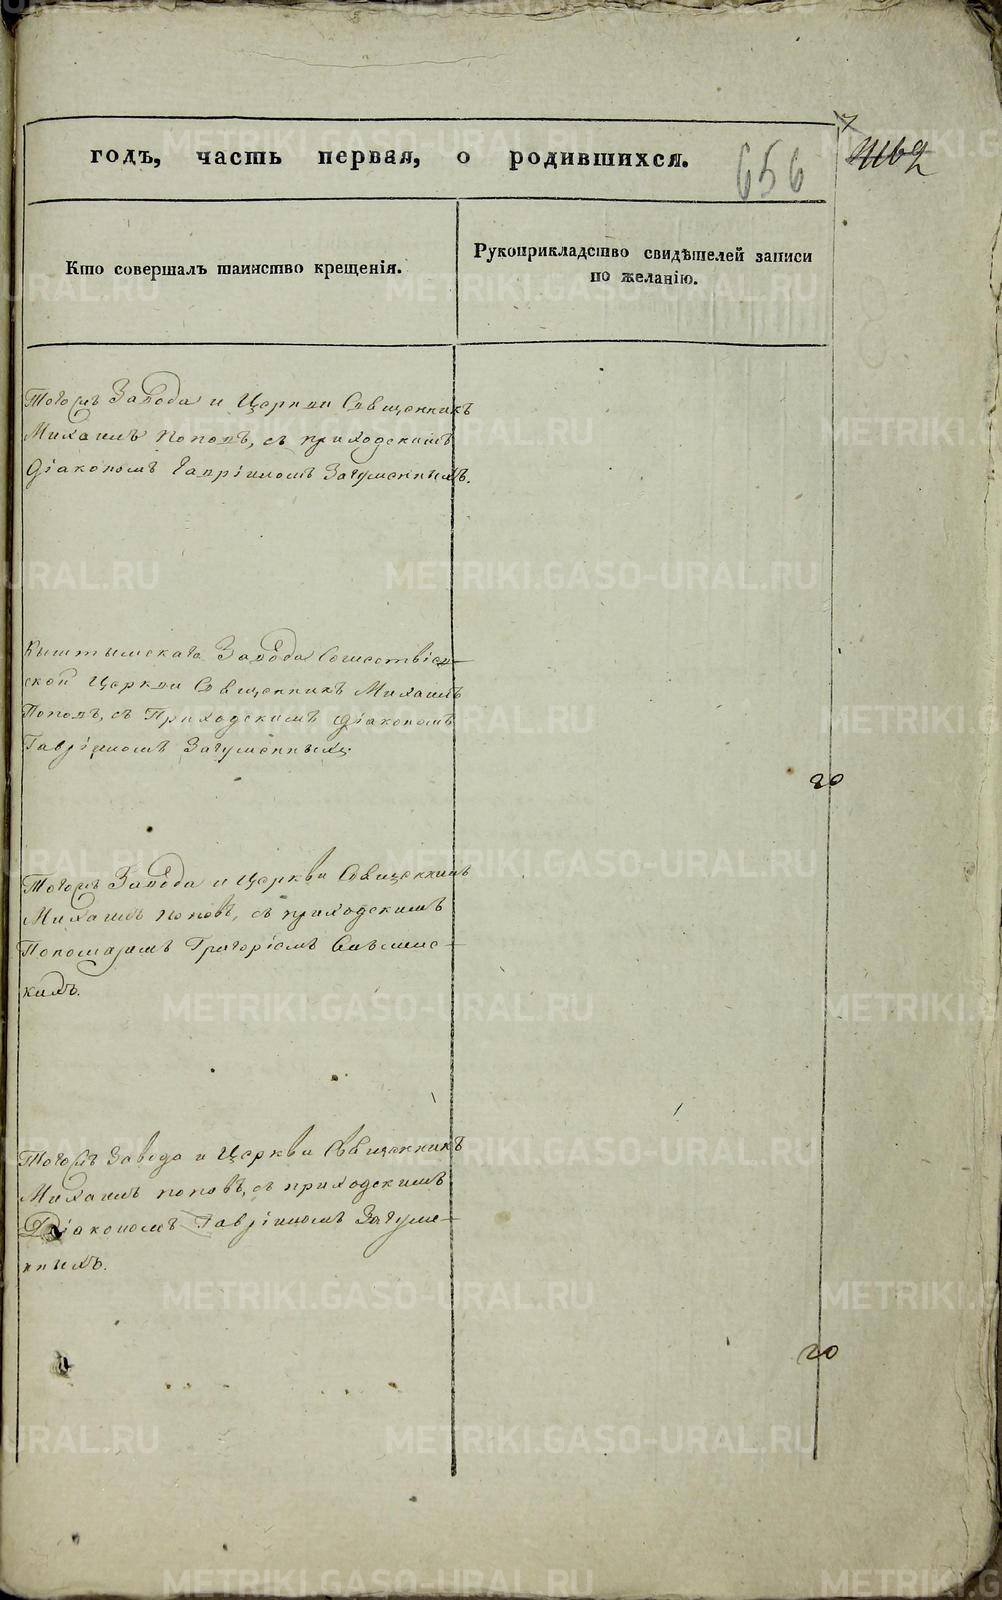 годъ, часть первая, о родившихся.
656
Кто совершалъ таинство крещенія.
Рукоприкладство свидѣтелей записи
по желанію.
Тогожъ Завода и Церкви Священникъ
Михаилъ Поповъ, съ приходскимъ
Діакономъ Гавріиломъ Загуменныхъ.
Кыштымскаго Завода Сошествіев-
ской Церкви Священникъ Михаилъ
Поповъ, съ Приходскимъ Діакономъ
Гавріиломъ Загуменныхъ
20
Тогожъ Завода и Церкви Священникъ
Михаилъ Поповъ, съ приходскимъ
Пономаремъ Григоріемъ
кимъ.
Тогожъ Завода и Церкви Священникъ
Михаилъ Поповъ, съ приходскимъ
Діакономъ Гавріиломъ Загуме-
нныхъ.
20
METRIKI.GASO-URAL.RU